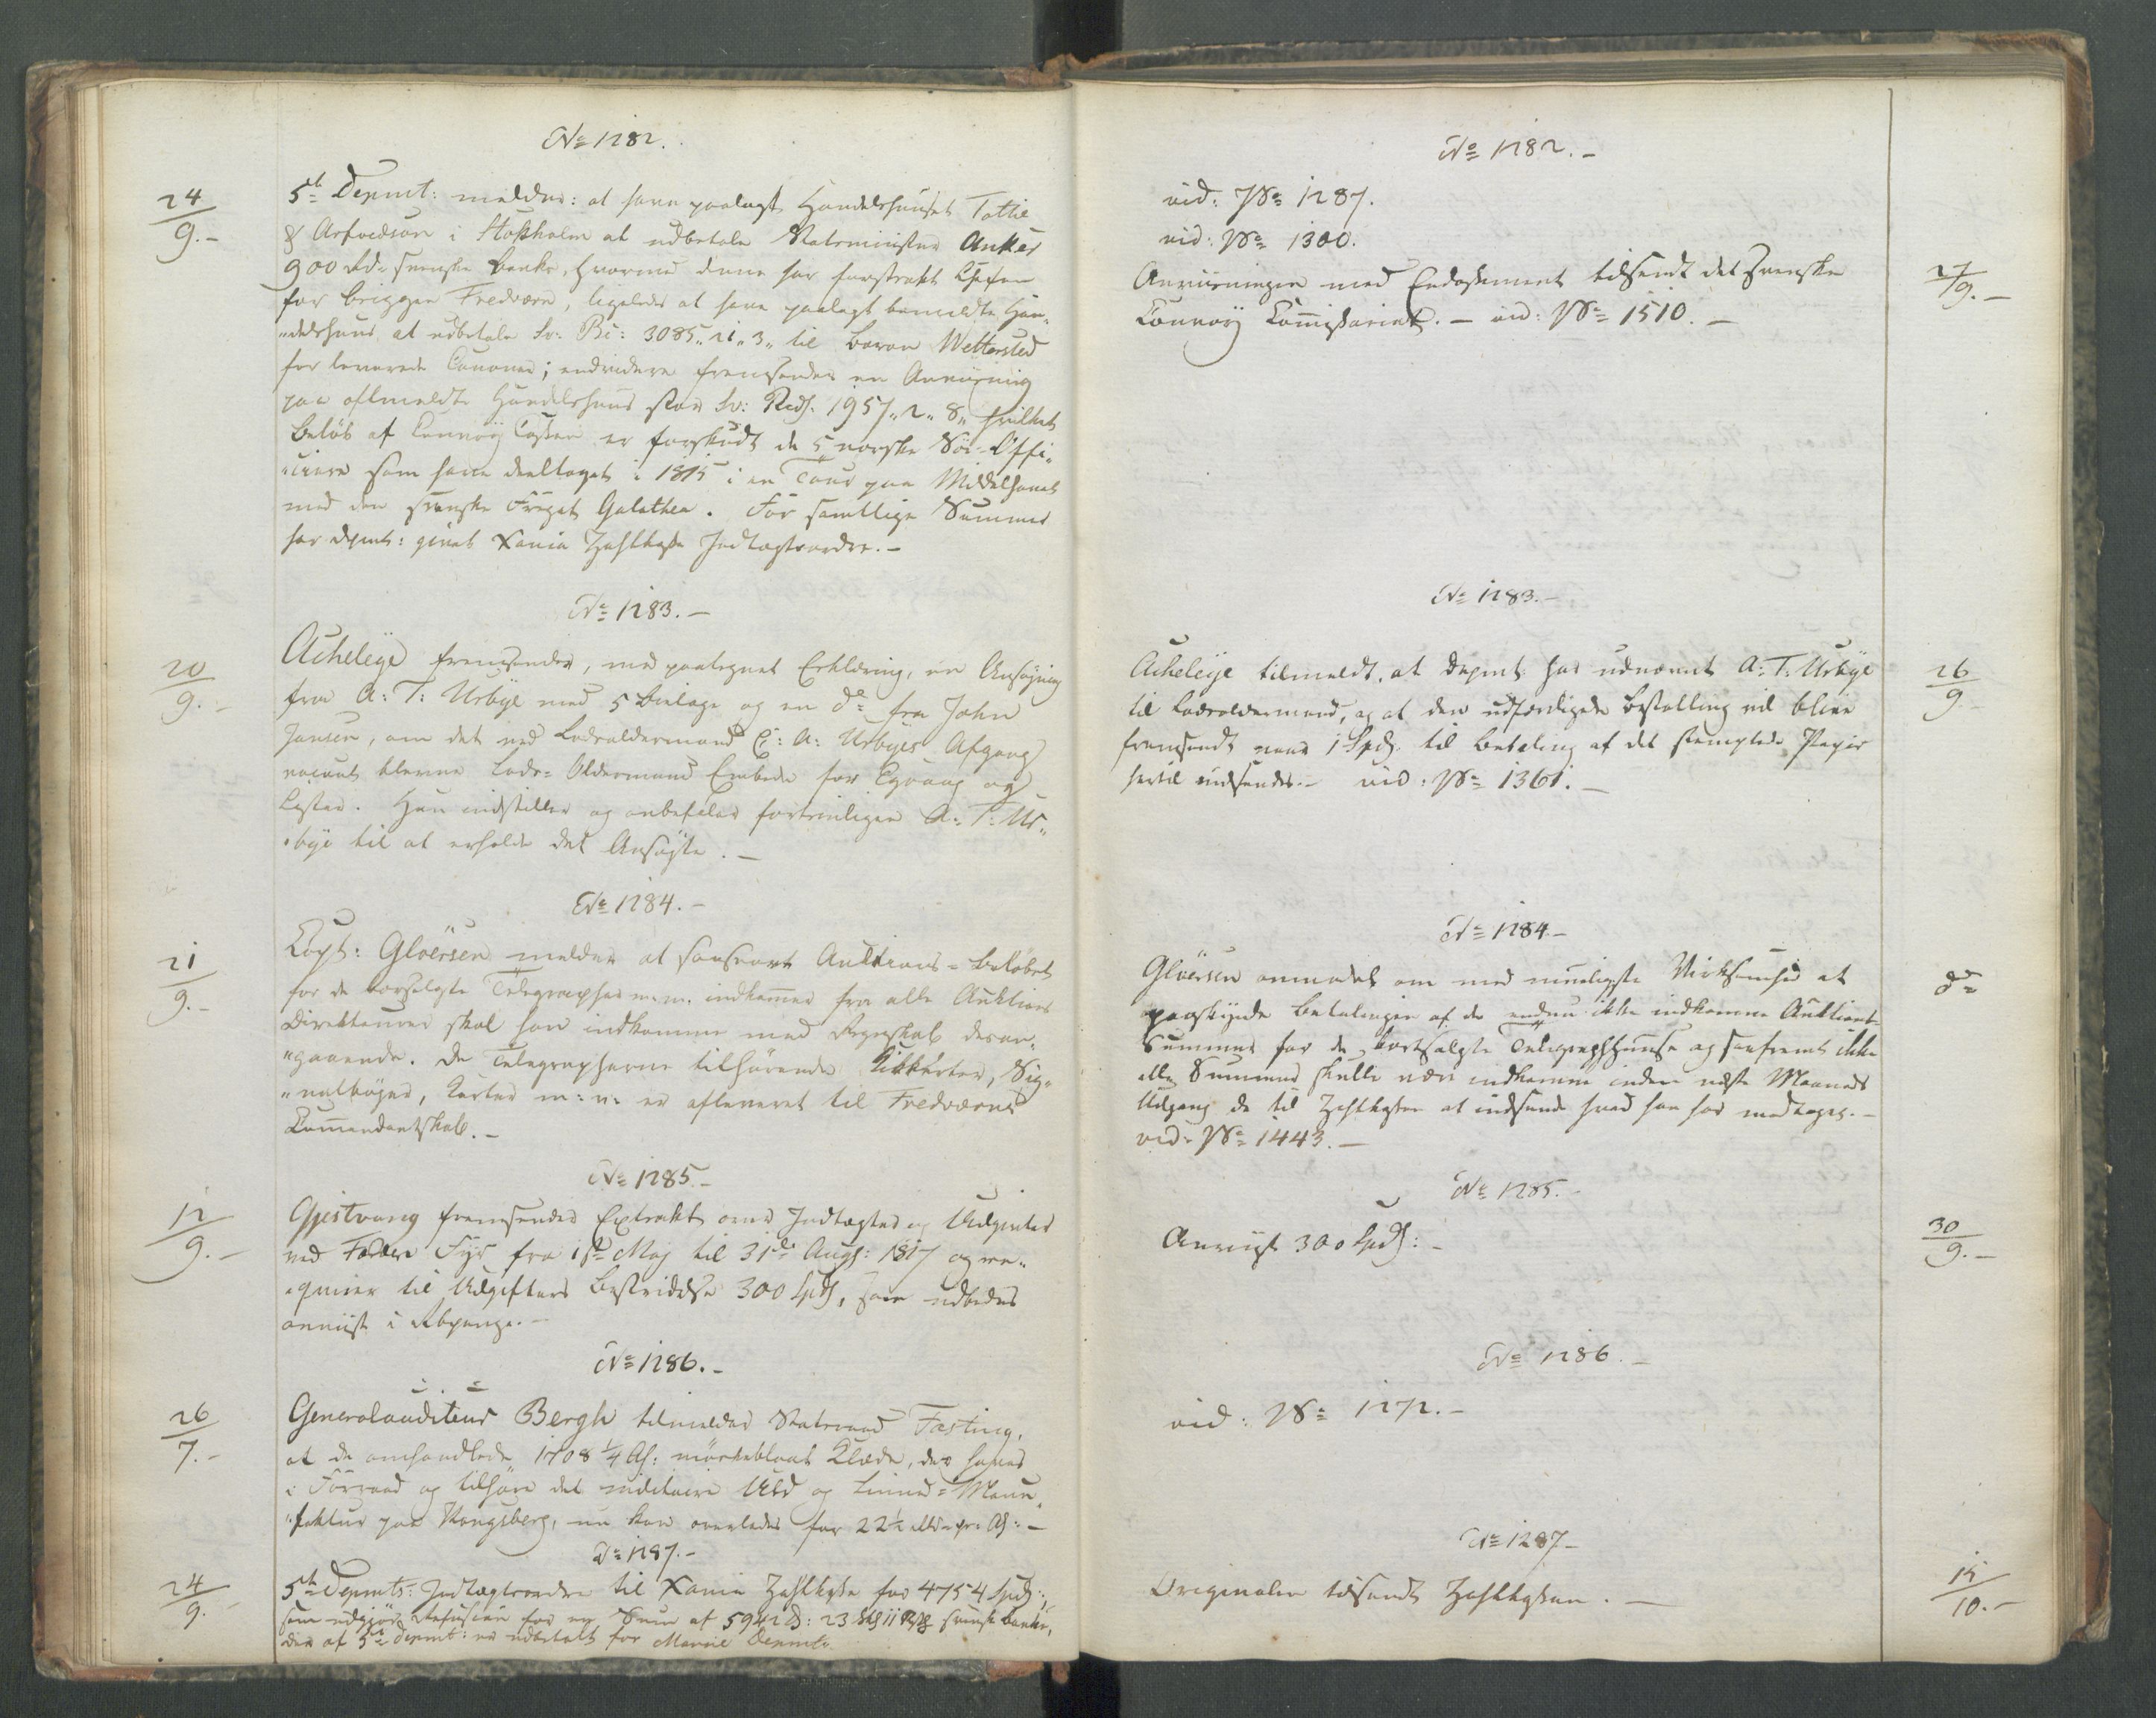 No 1282.
24/9.-
5te Depmt: melder: at have paalagt Handelshuuset Tottie
& Arfvedson i Stokholm at udbetale Statsminister Anker
900 Rd. svenske Banko, hvormed denne har forstrakt Chefen
for Briggen Fredværn, ligeledes at have paalagt bemeldte Han„
„delshuus at udbetale Sv: Bc: 3085„21„3„ til Baron Wetterstedt
for leverede Canoner; endvidere fremsendes en Anviisning
paa oftmeldte Handelshuus stor Sv: Rd. 1957„2„8„ hvilket
Beløb af Convoy Cassen er forskudt de 5 norske Søe-Offi„
„cierer som have deeltaget i 1815 i en Tour paa Middelhavet
med den svenske Fregat Galathea. For samtlige Summer
har Depmt: givet Xania Zahlkasse Indtægtsordre.-
No 1283.-
20/9.-
Acheleye fremsender, med paategnet Erklæring, en Ansøgning
fra A: T: Urbye med 5 Bielage og en do fra John
Jansen, om det ved Lodsoldermand C: A: Urbyes Afgang
vacant blevne Lods-Oldermand Embede for Egvaag og
Lister. Han indstiller og anbefaler fortrinligen A: T: Ur„
„bye til at erholde det Ansøgte.-
No 1284.-
21/9.-
Capt: Gloërsen melder at saasnart Auctions-Beløbet
for de bortsolgte Telegrapher m.m. indkommer fra alle Auktions
Direkteurer skal han indkomme med Regnskab desan„
„gaaende. De Telegrapherne tilhørende Kikkerter, Sig„
„nalbøger, Karter m: v: er afleveret til Fredværns
Commandantskab.-
No 1285.-
12/9.-
Gjestvang fremsender Extrakt over Indtægter og Udgivter
ved Færder Fyr fra 1ste Maj til 31te Augs: 1817 og re„
„qvirer til Udgifters Bestridelse 300 Spd, som udbedes
anviist i Rbpenge.-
No 1286.-
26/7.-
Generalauditeur Bergh tilmelder Statsraad Fasting,
at de omhandlede 1708 1/4 Al: mørkeblaat Klæde, der haves
i Forraad og tilhøre det militaire Uld og Linned-Manu„
„faktur paa Kongsberg, nu kan overlades for 22 1/2 Mk pr: Al:-
No 1287.-
24/9.
5te Depmts: Indtægtsordre til Xania Zahlkasse for 4754 Spd;
som udgjør Refusion for en Sum af 5942 d: 23 sk 11 svensk Banko,
der af 5te Depmt: er udbetalt for Marine Depmtet.
No 1282.-
vid: No 1287.
vid: No 1300.
Anviisningen med Endossement tilsendt det svenske
Convoy Commissariat.- vid: No 1510.-
27/9.-
No 1283.-
Acheleye tilmeldt, at Depmt: har udnævnt A: T: Urbye
til Lodsoldermand, og at den udfærdigede Bestalling vil blive
fremsendt naar 1 Spd. til Betaling af det stemplede Papir
hertil indsendes.- vid: No 1361.-
26/9.-
No 1284.-
Gloërsen anmodet om med mueligste Virksomhed at
paaskynde Betalingen af de endnu ikke indkomne Auktions-
Summer for de bortsolgte Telegraphhuuse og saafremt ikke
alle Summer skulle være indkomne inden næste Maaneds
Udgang da til Zahlkassen at indsende hvad han har modtaget.-
vid: No 1443.-
do
No 1285.-
Anviist 300 Spd:-
30/9.-
No 1286.-
vid: No 1272.-
No 1287.-
Originalen tilsendt Zahlkassen.-
14/10.-